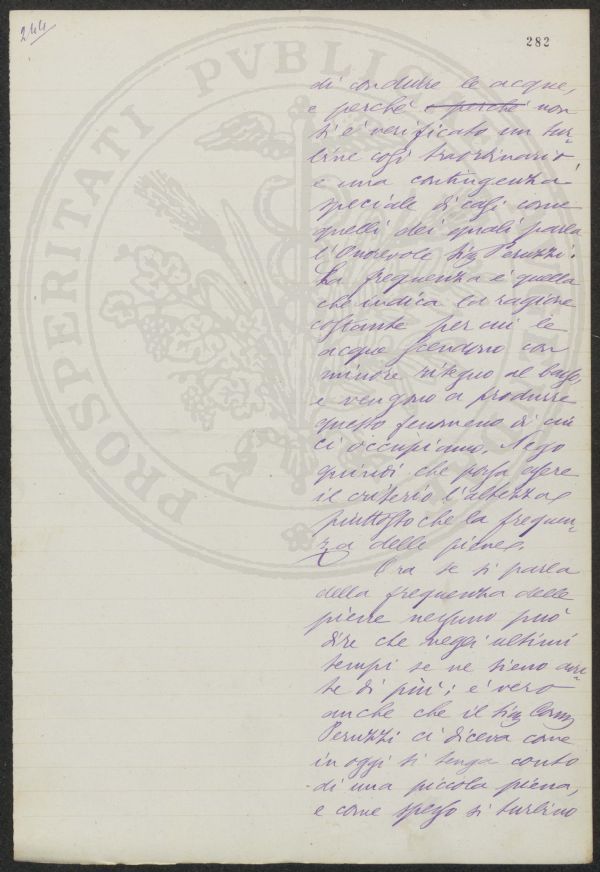 244
282
PROSPERITATI PVBLICAE
di condurre le acque,
e perché e perché non
si è verificato un tur-
bine così straordinario
e una contingenza
speciale di casi come
quelli dei quali parla
l'Onorevole Sig Peruzzi.
La frequenza è quella
che indica la ragione
costante per cui le
acque scendono con
minore ritegno al basso,
e vengono a produrre
questo fenomeno di cui
ci occupiamo. Nego
quindi che possa essere
il criterio l'altezza
piuttosto che la frequen-
za delle piene.
Ora se si parla
della frequenza delle
piene nessuno può
dire che negli ultimi
tempi se ne sieno avu-
te di più; è vero
anche che il Sig Comm
Peruzzi ci diceva come
in oggi si tenga conto
di una piccola piena,
e come spesso si turbino